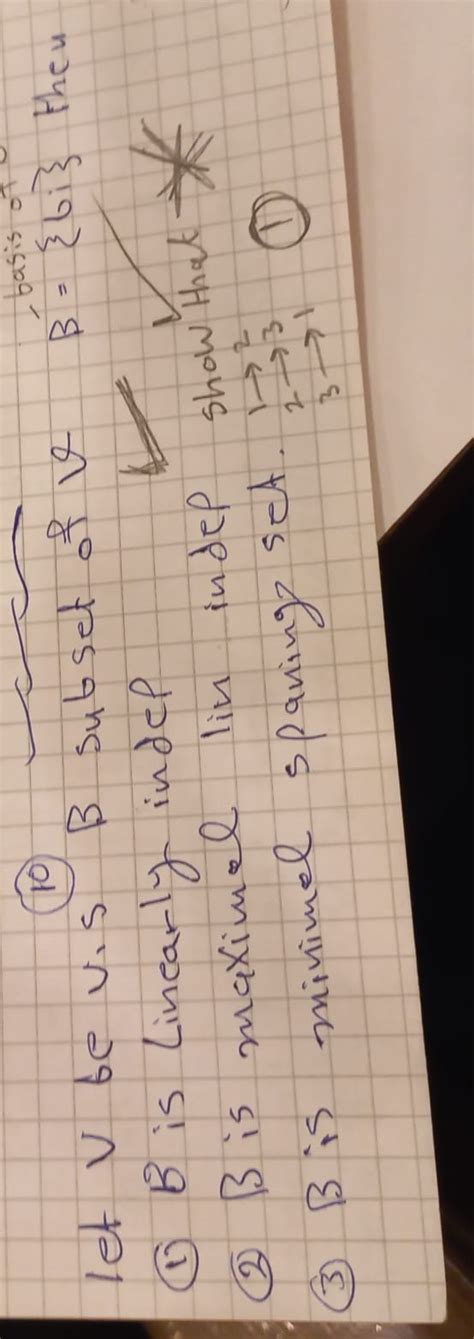 basis of
10
let V be v.s B subset of V B = {bi} then
① B is Linearly indep
② B is maximal lin indep show that
③ B is minimal spaning set. 1 → 2
2 → 3
3 → 1
①